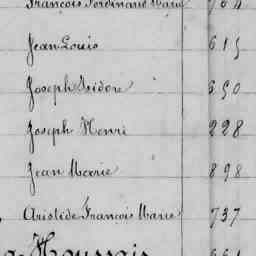 François Ferdinand Marie 764
Jean Louis 615
Joseph Isidore 650
Joseph Henri 228
Jean Marie 898
Aristide François Marie 737